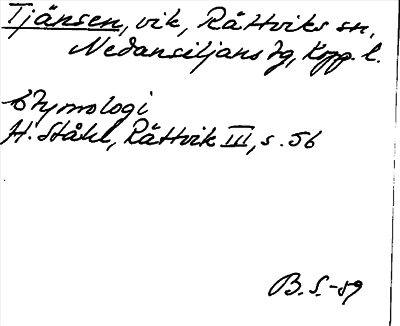 Tjänsen, vik, Rättviks sn,
Nedansiljans fg, Kopp. l.
Etymologi
H. Ståhl, Rättvik III, s. 56
B. S. -59